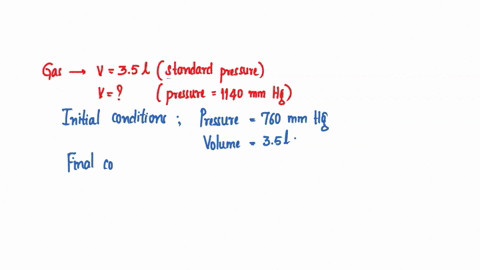 Gas → V = 3.5 l (standard pressure)
V = ? (pressure = 1140 mm Hg)
Initial conditions ; Pressure = 760 mm Hg
Volume = 3.5 l.
Final co